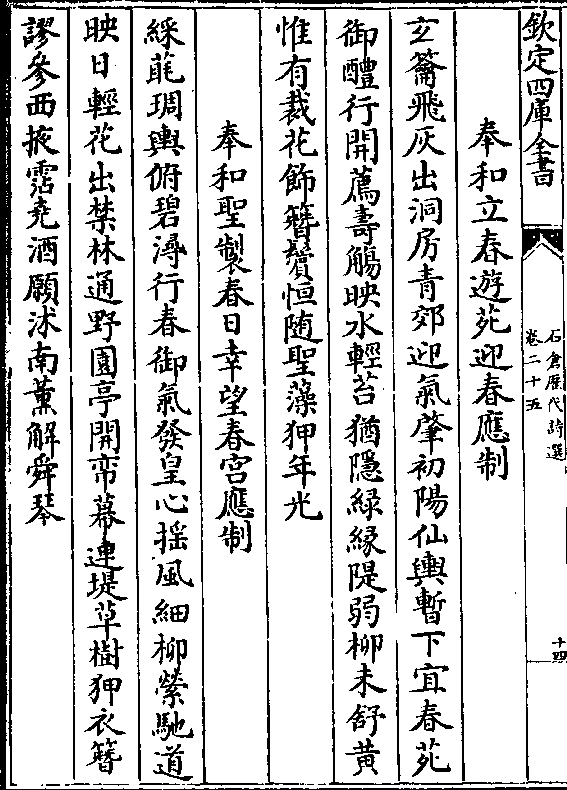 欽定四庫全書
石倉歷代詩選
卷二十五
十四
奉和立春遊苑迎春應制
玄籥飛灰出洞房青郊迎氣肇初陽仙輿暫下宜春苑
御醴行開薦壽觴映水輕苔猶隱緑緣隄弱柳未舒黄
惟有裁花飾簪鬢恒随聖藻狎年光
奉和聖製春日幸望春宫應制
綵蕤琱輿俯碧潯行春御氣發皇心揺風細柳縈馳道
映日輕花出禁林通野園亭開帟幕連堤草樹狎衣簪
謬參西掖霑堯酒願沭南薫解舜琴